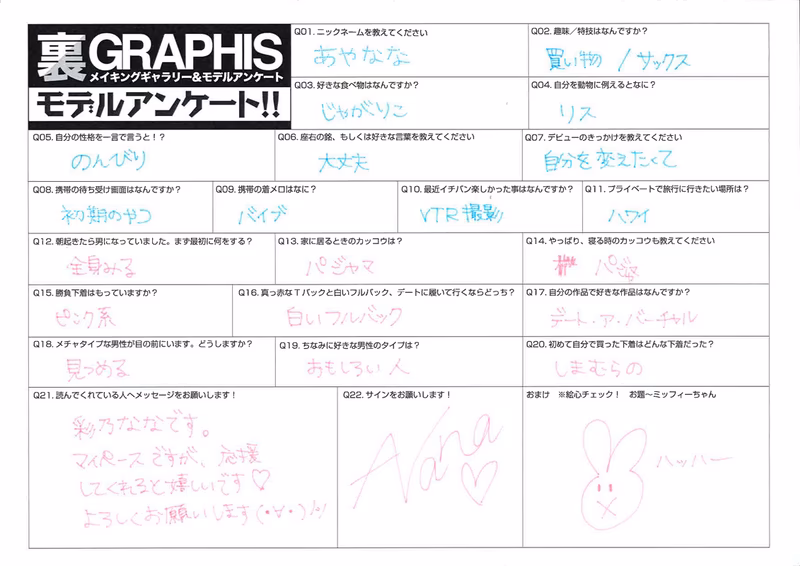 裏GRAPHIS
メイキングギャラリー&モデルアンケート
モデルアンケート!!
Q01. ニックネームを教えてください
あやなな
Q02. 趣味／特技はなんですか？
買い物 / サックス
Q03. 好きな食べ物はなんですか？
じゃがりこ
Q04. 自分を動物に例えるとなに？
リス
Q05. 自分の性格を一言で言うと！？
のんびり
Q06. 座右の銘、もしくは好きな言葉を教えてください
大丈夫
Q07. デビューのきっかけを教えてください
自分を変えたくて
Q08. 携帯の待ち受け画面はなんですか？
初期のやつ
Q09. 携帯の着メロはなに？
バイブ
Q10. 最近イチバン楽しかった事はなんですか？
VTR撮影
Q11. プライベートで旅行に行きたい場所は？
ハワイ
Q12. 朝起きたら男になっていました。まず最初に何をする？
全身みる
Q13. 家に居るときのカッコウは？
パジャマ
Q14. やっぱり、寝る時のカッコウも教えてください
Q15. 勝負下着はもっていますか？
ピンク系
Q16. 真っ赤なTバックと白いフルバック、デートに履いて行くならどっち？
白いフルバック
Q17. 自分の作品で好きな作品はなんですか？
デート・ア・バーチャル
Q18. メチャタイプな男性が目の前にいます。どうしますか？
見つめる
Q19. ちなみに好きな男性のタイプは？
おもしろい人
Q20. 初めて自分で買った下着はどんな下着だった？
しまむらの
Q21. 読んでくれている人へメッセージをお願いします！
彩乃ななです。
マイペースですが、応援
してくれると嬉しいです♡
よろしくお願いします(・∀・)ﾉﾉ
Q22. サインをお願いします！
Nana♡
おまけ ※絵心チェック！ お題〜ミッフィーちゃん
ハッハー